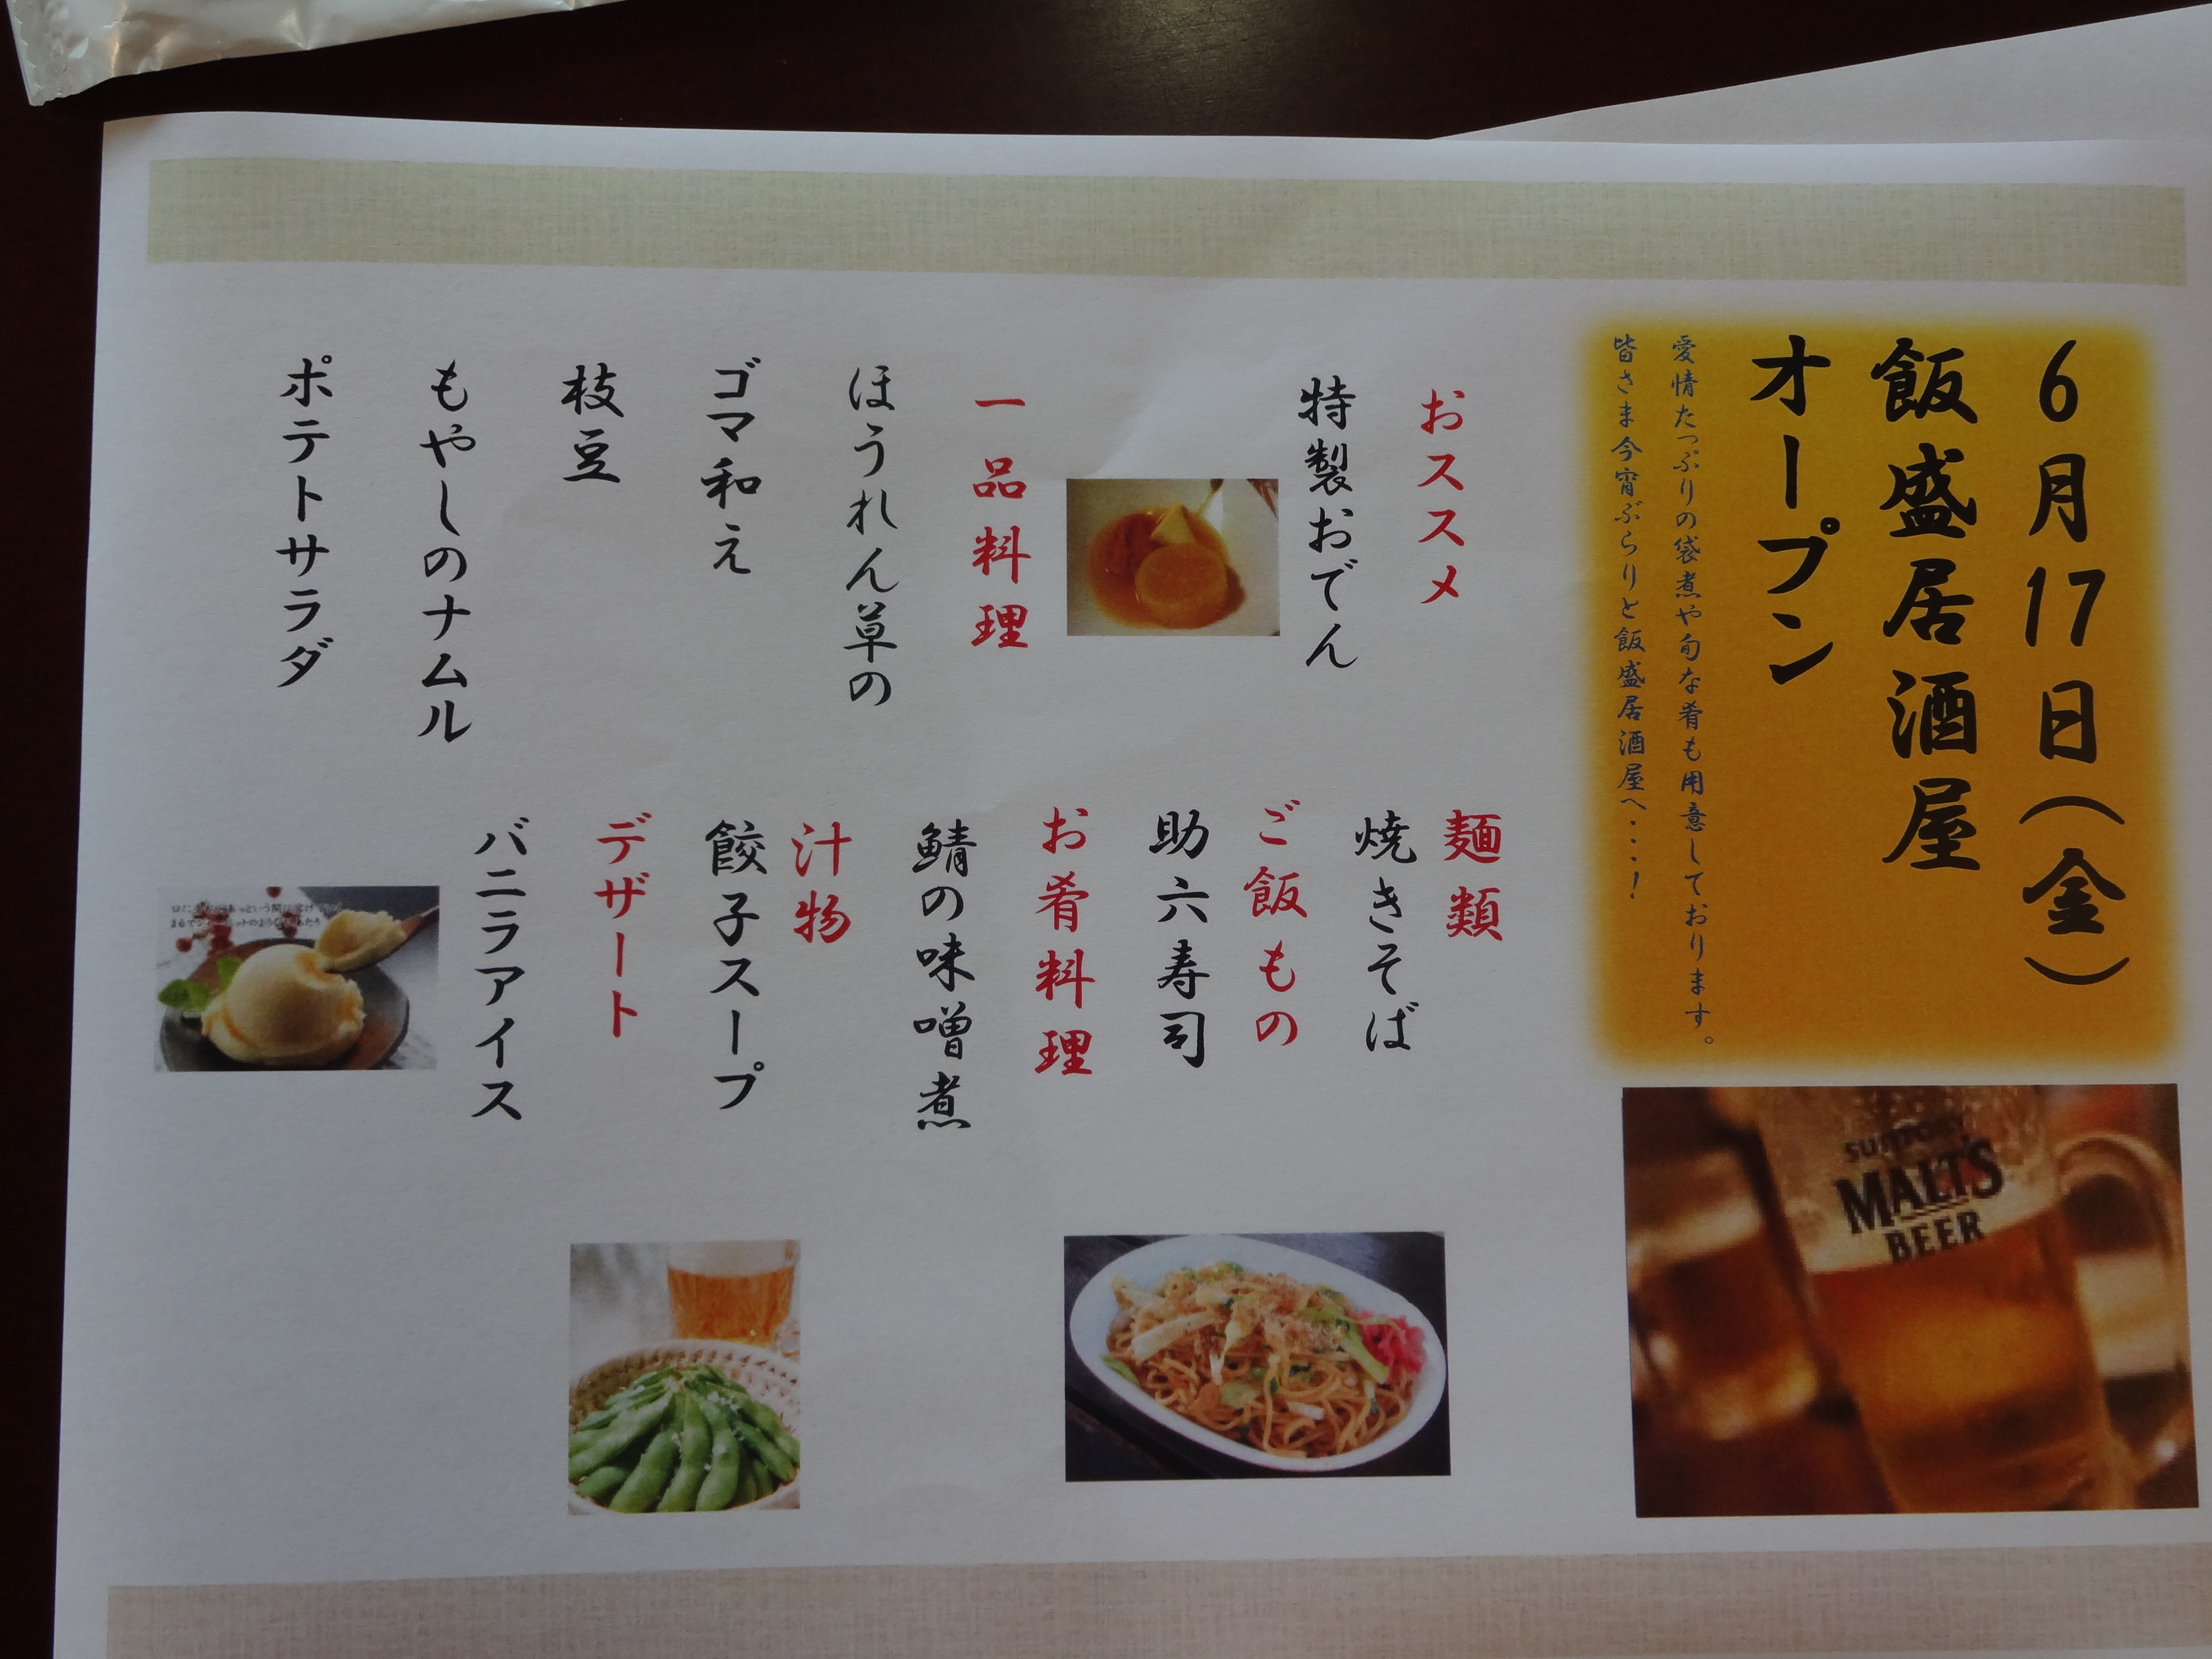 6月17日(金)
飯盛居酒屋
オープン
愛情たっぷりの袋煮や旬な肴も用意しております。
皆さま今宵ぶらりと飯盛居酒屋へ・・・・!
おススメ
特製おでん
一品料理
ほうれん草の
ゴマ和え
枝豆
もやしのナムル
ポテトサラダ
麺類
焼きそば
ご飯もの
助六寿司
お肴料理
鯖の味噌煮
汁物
餃子スープ
デザート
バニラアイス
SUNTORY
MALT'S
BEER